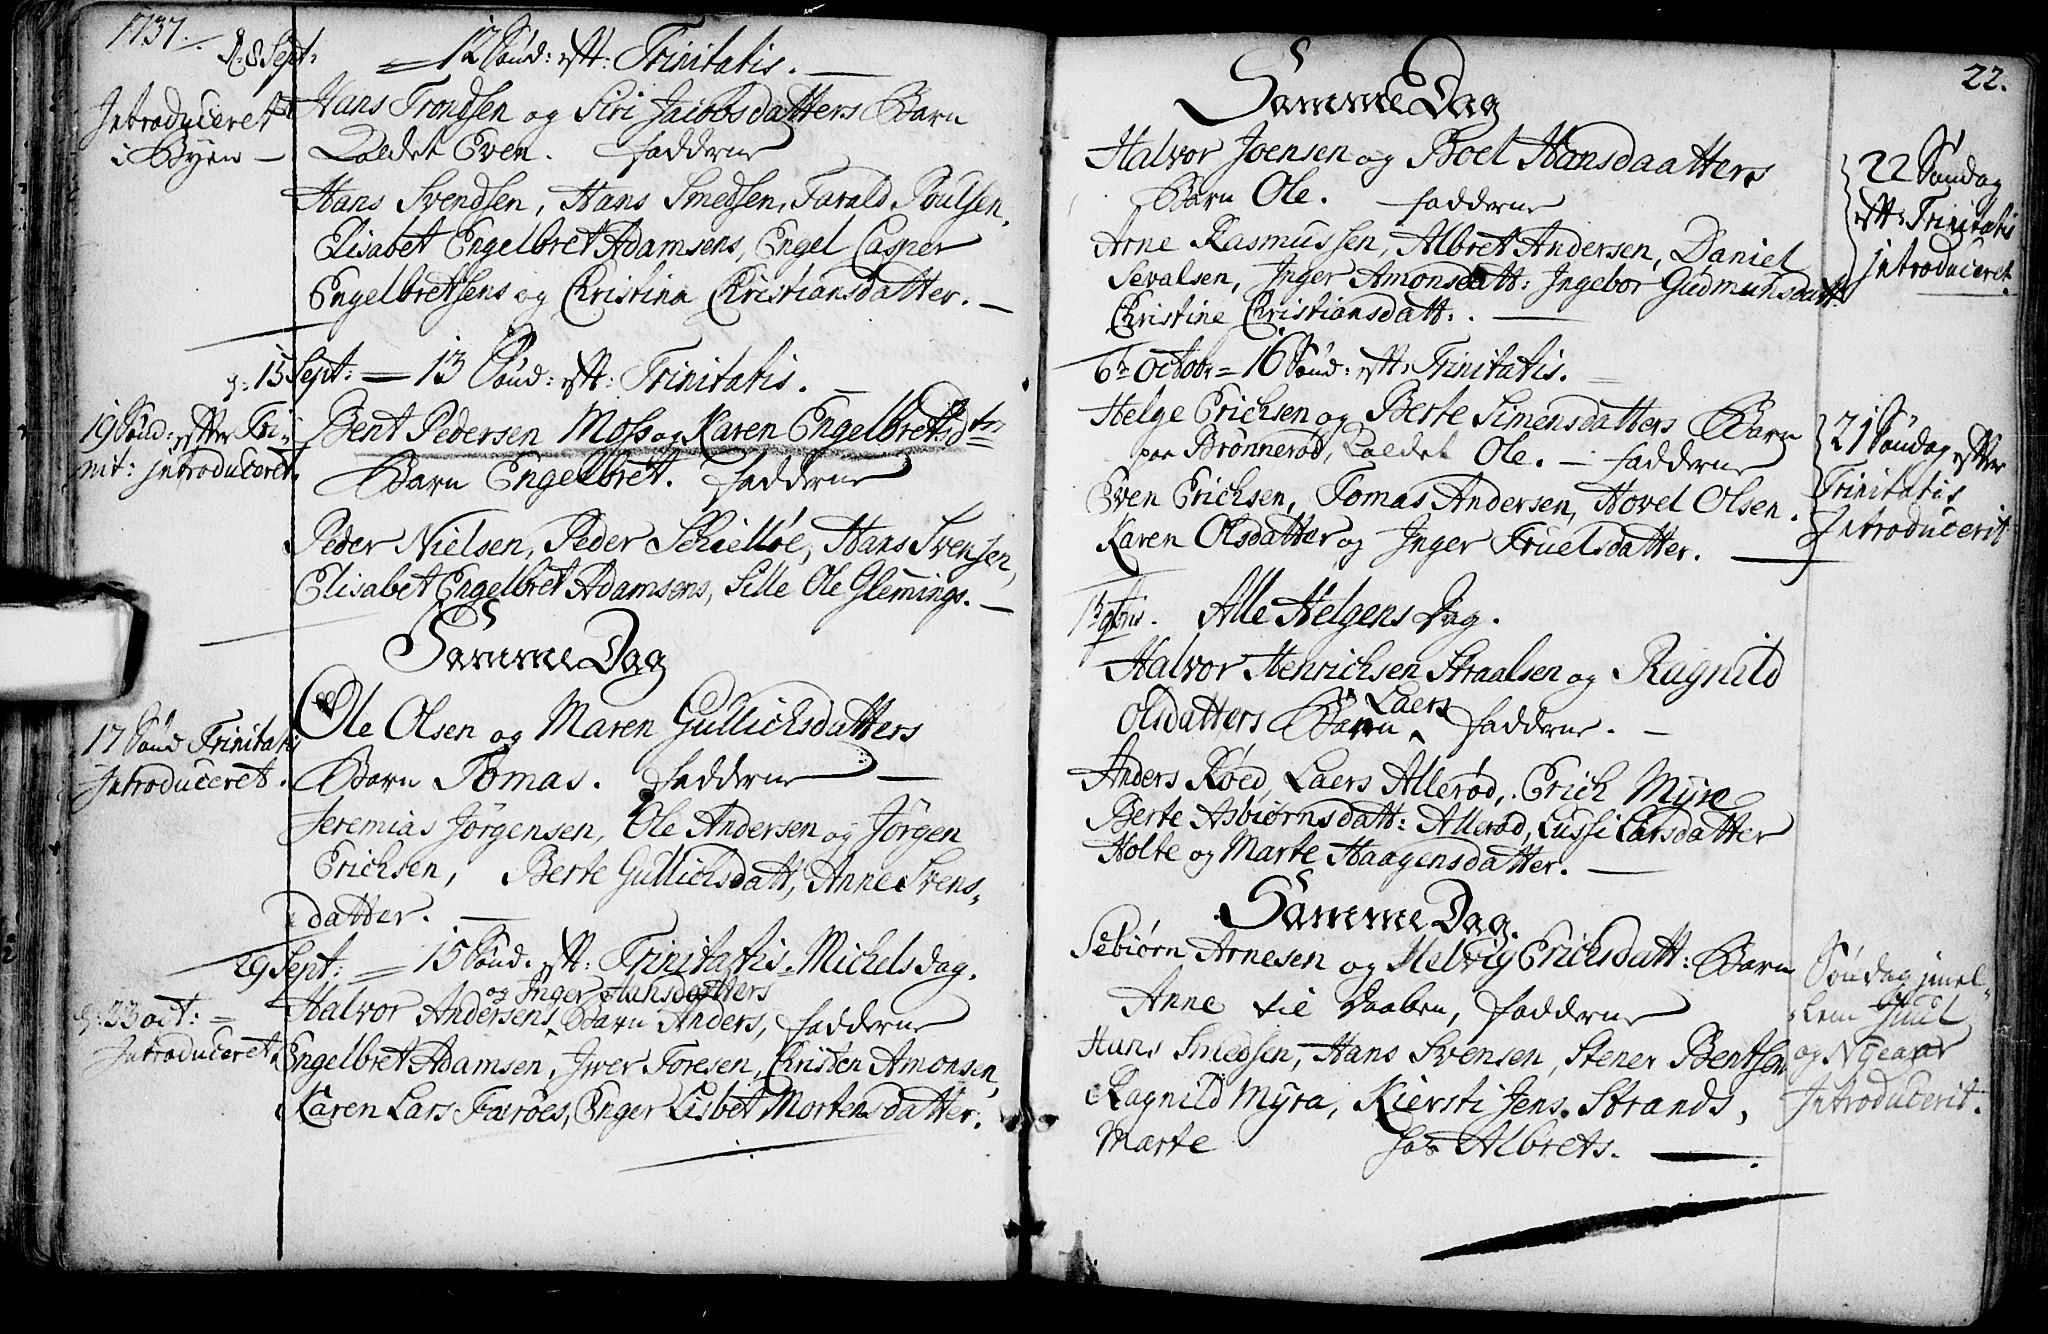 1737.
d. 8 Sept: = 12 Sønd: eft: Trinitatis. —
Introduceret
i Byen —
Hans Trondsen og Siri Jacobsdatters Barn
Kaldet Even. Fadderne
Hans Svendsen, Hans Smedsen, Tarald Poulsen,
Elisabet Engelbret Adamsens, Engel Casper
Engelbretsens og Christina Christiansdatter. —
d: 15 Sept: — 13 Sønd: eft: Trinitatis. —
19 Sønd: efter Tri-
nit: introduceret.
Bent Pedersen Moss og Karen Engelbretsdtr
Barn Engelbret. Fadderne
Peder Nielsen, Peder Schielløe, Hans Svensen,
Elisabet Engelbret Adamsens, Sille Ole Glemmings. —
Samme Dag
17 Sønd Trinitatis
Introduceret.
Ole Olsen og Maren Gullichsdatters
Barn Tomas. Fadderne —
Jeremias Jørgensen, Ole Andersen og Jørgen
Erichsen, Berte Gullichsdatt, Anne Svens-
datter. —
29 Sept: = 15 Sønd. eft: Trinitatis. Michelsdag.
d: 23 oct: =
Introduceret
og Inger Hansdatters
Halvor Andersens Barn Anders, Fadderne
Engelbret Adamsen, Iwer Toresen, Christen Amonsen,
Karen Lars Færøes, Enger Lisbet Mortensdatter.
22.
Samme Dag
Halvor Joensen og Boel Hansdaatters
Barn Ole. — Fadderne
Arne Rasmussen, Albret Andersen, Daniel
Sevalsen, Inger Amonsdatt: Ingebor Gudmunsdatt:
Christine Christiansdatt: . —
22 Søndag
eft: Trinitatis
introduceret.
6te Octobr = 16 Sønd: eft: Trinitatis. =
Helge Erichsen og Berte Simensdatters Barn
paa Brønnerød, Kaldet Ole. — Fadderne
Even Erichsen, Tomas Andersen, Hovel Olsen.
Karen Olsdatter og Inger Truelsdatter. —
21 Søndag efter
Trinitatis
Introducerit
1te 9bris. Alle Helgens Dag.
Halvor Henrichsen Straalsen og Ragnild
Laers
Olsdatters Barn ^ Fadderne. —
Anders Røed, Laers Allerød, Erich Myra
Berte Asbiørnsdatt: Allerød, Lussi Larsdatter
Holte og Marte Haagensdatter. —
Samme Dag.
Sebiørn Arnesen og Helvig Ericksdatt: Barn
Anne til Daaben, Fadderne
Hans Smedsen, Hans Svensen, Stener Bentsen
Ragnild Myra, Kiersti Jens Strands,
Marte hos Albrets. —
Søndag imel-
lem Juul
og Nyeaar
Introducerit.